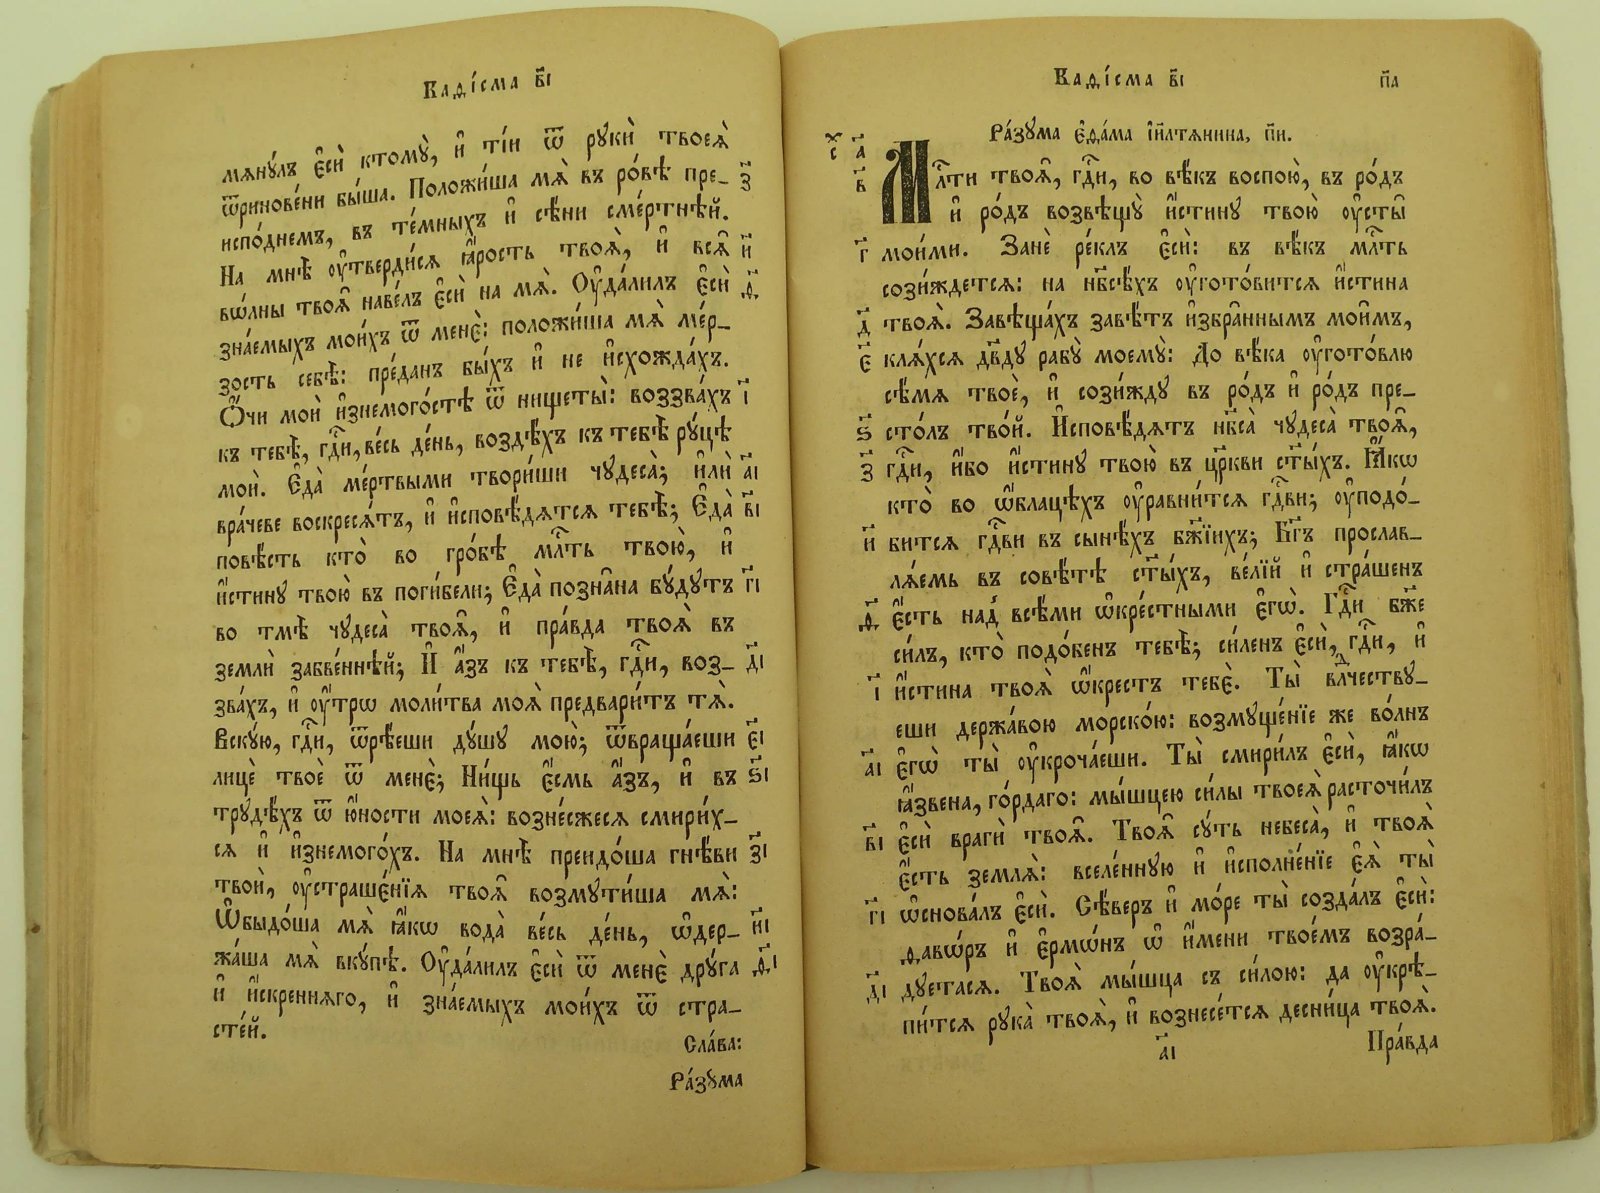 Каѳі́сма в҃і
мянꙋ́лъ є҆сѝ ктомꙋ̀, и҆ ті́и ѿ рꙋкѝ твоеѧ̀
ѿринове́ни бы́ша. Положи́ша мѧ̀ въ ро́вѣ пре_ з҃
испо́днемъ, въ те́мныхъ и҆ сѣ́ни сме́ртнѣй.
На мнѣ̀ ᲂу҆тверди́сѧ ꙗ҆́рость твоѧ̀, и҆ всѧ̑ и҃
вѡ́лны твоѧ̑ наве́лъ є҆сѝ на мѧ̀. Оу҆да́лилъ є҆сѝ ѳ҃
зна́емыхъ мои́хъ ѿ менє̀: положи́ша мѧ̀ ме́р_
зость себѣ̀: пре́данъ бы́хъ и҆ не и҆схожда́хъ.
Ѻ҆́чи моѝ и҆знемого́стѣ ѿ нищеты̀: воззва́хъ і҃
къ тебѣ̀, гдⷭ҇и, ве́сь де́нь, воздѣ́хъ къ тебѣ̀ рꙋ́цѣ
моѝ. Є҆да̀ ме́ртвыми твори́ши чꙋдеса̀; и҆лѝ а҃і
вра́чеве воскресѧ́тъ, и҆ и҆сповѣ́дѧтсѧ тебѣ̀; Є҆да̀ в҃і
повѣ́сть кто̀ во гро́бѣ млⷭ҇ть твою̀, и҆
и҆́стинꙋ твою̀ въ поги́бели; Є҆да̀ позна̑на бꙋ́дꙋтъ г҃і
во тмѣ̀ чꙋдеса̀ твоѧ̑, и҆ пра́вда твоѧ̀ въ
землѝ забве́ннѣй; И҆ а҆́зъ къ тебѣ̀, гдⷭ҇и, воз_ д҃і
зва́хъ, и҆ ᲂу҆́трѡ моли́тва моѧ̀ предвари́тъ тѧ̀.
Вскꙋ́ю, гдⷭ҇и, ѿрѣ́еши дꙋ́шꙋ мою̀; ѿвраща́еши є҃і
лицѐ твоѐ ѿ менє̀; Ни́щь є҆́смь а҆́зъ, и҆ въ ѕ҃і
трꙋдѣ́хъ ѿ ю҆́ности моеѧ̀: вознє́сжесѧ смири́х_
сѧ и҆ и҆знемого́хъ. На мнѣ̀ преидо́ша гнѣ́ви з҃і
твоѝ, ᲂу҆страше́нїѧ твоѧ̑ возмꙋти́ша мѧ̀:
Ѡ҆быдо́ша мѧ̀ ꙗ҆́кѡ вода̀ ве́сь де́нь, ѡ҆дер_ и҃і
жа́ша мѧ̀ вкꙋ́пѣ. Оу҆да́лилъ є҆сѝ ѿ менє̀ дрꙋ́га ѳ҃і
и҆ и҆́скреннѧго, и҆ зна́емыхъ мои́хъ ѿ стра_
сте́й.
Сла́ва:
Ра́зꙋма
Каѳі́сма в҃і
п҃а
Ра́зꙋма є҆ѳа́ма і҆и҃лтѧнина, п҃и.
х с а҃
Млⷭ҇ти твоѧ̑, гдⷭ҇и, во вѣ́къ воспою̀, въ ро́дъ в҃
и҆ ро́дъ возвѣщꙋ̀ и҆́стинꙋ твою̀ ᲂу҆сты̑
г҃ мои́ми. Занѐ ре́клъ є҆сѝ: въ вѣ́къ млⷭ҇ть
сози́ждетсѧ: на нб҃сѣ́хъ ᲂу҆гото́витсѧ и҆́стина
д҃ твоѧ̀. Завѣща́хъ завѣ́тъ и҆збра̑ннымъ мои̑мъ,
є҃ клѧ́хсѧ дв҃дꙋ рабꙋ̀ моемꙋ̀: До вѣ́ка ᲂу҆гото́влю
сѣ́мѧ твоѐ, и҆ сози́ждꙋ въ ро́дъ и҆ ро́дъ пре_
ѕ҃ сто́лъ тво́й. И҆сповѣ́дѧтъ нб҃са̀ чꙋдеса̀ твоѧ̑,
з҃ гдⷭ҇и, и҆́бо и҆́стинꙋ твою̀ въ цр҃кви ст҃ы́хъ. Ꙗ҆́кѡ
кто̀ во ѡ҆́блацѣхъ ᲂу҆равни́тсѧ гдⷭ҇ви; ᲂу҆подо́_
и҃ битсѧ гдⷭ҇ви въ сынѣ́хъ бж҃їихъ; Бг҃ъ прослав_
лѧ́емь въ совѣ́тѣ ст҃ы́хъ, ве́лїй и҆ стра́шенъ
ѳ҃ є҆́сть над̾ всѣ́ми ѡ҆кре́стными є҆гѡ̀. Гдⷭ҇и бж҃е
си́лъ, кто̀ подо́бенъ тебѣ̀; си́ленъ є҆сѝ, гдⷭ҇и, и҆
і҃ и҆́стина твоѧ̀ ѡ҆́крестъ тебє̀. Ты̀ влⷣчествꙋ_
еши держа́вою морско́ю: возмꙋще́нїе же во́лнъ
а҃і є҆гѡ̀ ты̀ ᲂу҆кроча́еши. Ты̀ смири́лъ є҆сѝ, ꙗ҆́кѡ
ꙗ҆́звена, го́рдаго: мы́шцею си́лы твоеѧ̀ расточи́лъ
в҃і є҆сѝ врагѝ твоѧ̑. Твоѧ̑ сꙋ́ть небеса̀, и҆ твоѧ̀
є҆́сть землѧ̀: вселе́ннꙋю и҆ и҆сполне́нїе є҆ѧ̀ ты̀
г҃і ѡ҆снова́лъ є҆сѝ. Сѣ́веръ и҆ мо́ре ты̀ созда́лъ є҆сѝ:
ѳавѡ́ръ и҆ є҆рмѡ́нъ ѡ҆ и҆́мени твое́мъ возра́_
д҃і дꙋетасѧ. Твоѧ̀ мы́шца съ си́лою: да ᲂу҆крѣ_
пи́тсѧ рꙋка̀ твоѧ̀, и҆ вознесе́тсѧ десни́ца твоѧ̀.
а҃і
Пра́вда